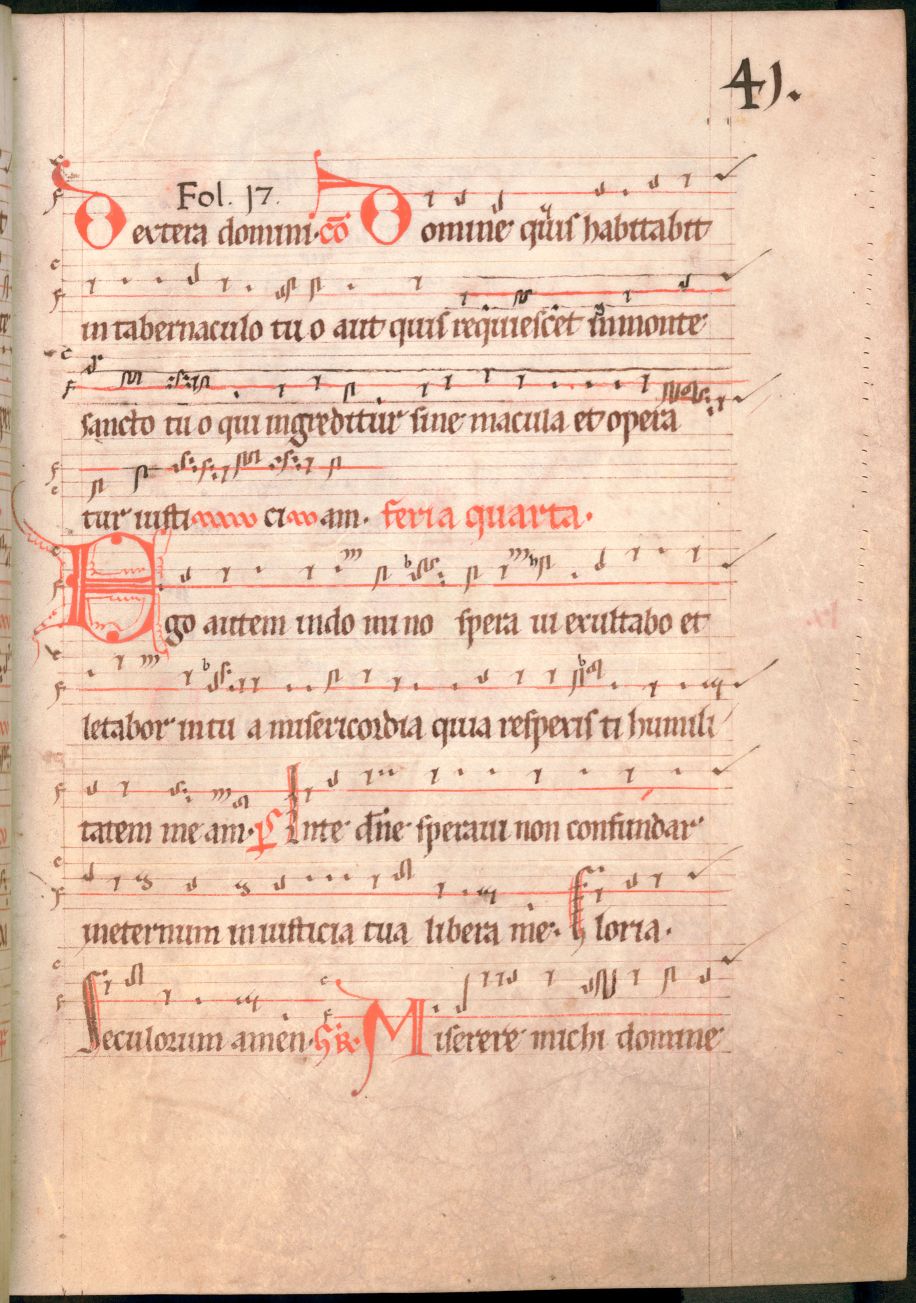 41.
Fol. 17.
Dextera domini· cō Domine quis habitabit
in tabernaculo tu o aut quis requiescet in monte
sancto tu o qui ingreditur sine macula et opera
tur iusti ci am· feria quarta·
Ego autem in do mi no spera ui exultabo et
letabor in tu a misericordia quia respexis ti humili
tatem me am· ps Inte dn̄e speraui non confundar
ineternum in iusticia tua libera me· Gloria·
Seculorum amen· Gr̄· Miserere michi domine